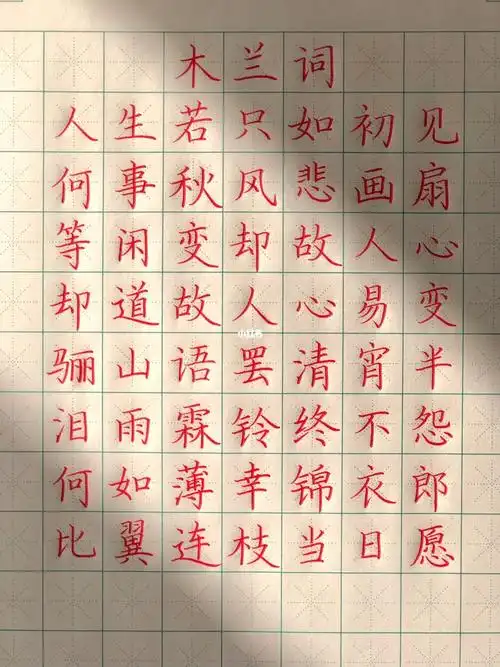 木兰词
人生若只如初见
何事秋风悲画扇
等闲变却故人心
却道故人心易变
骊山语罢清宵半
泪雨霖铃终不怨
何如薄幸锦衣郎
比翼连枝当日愿
小红书